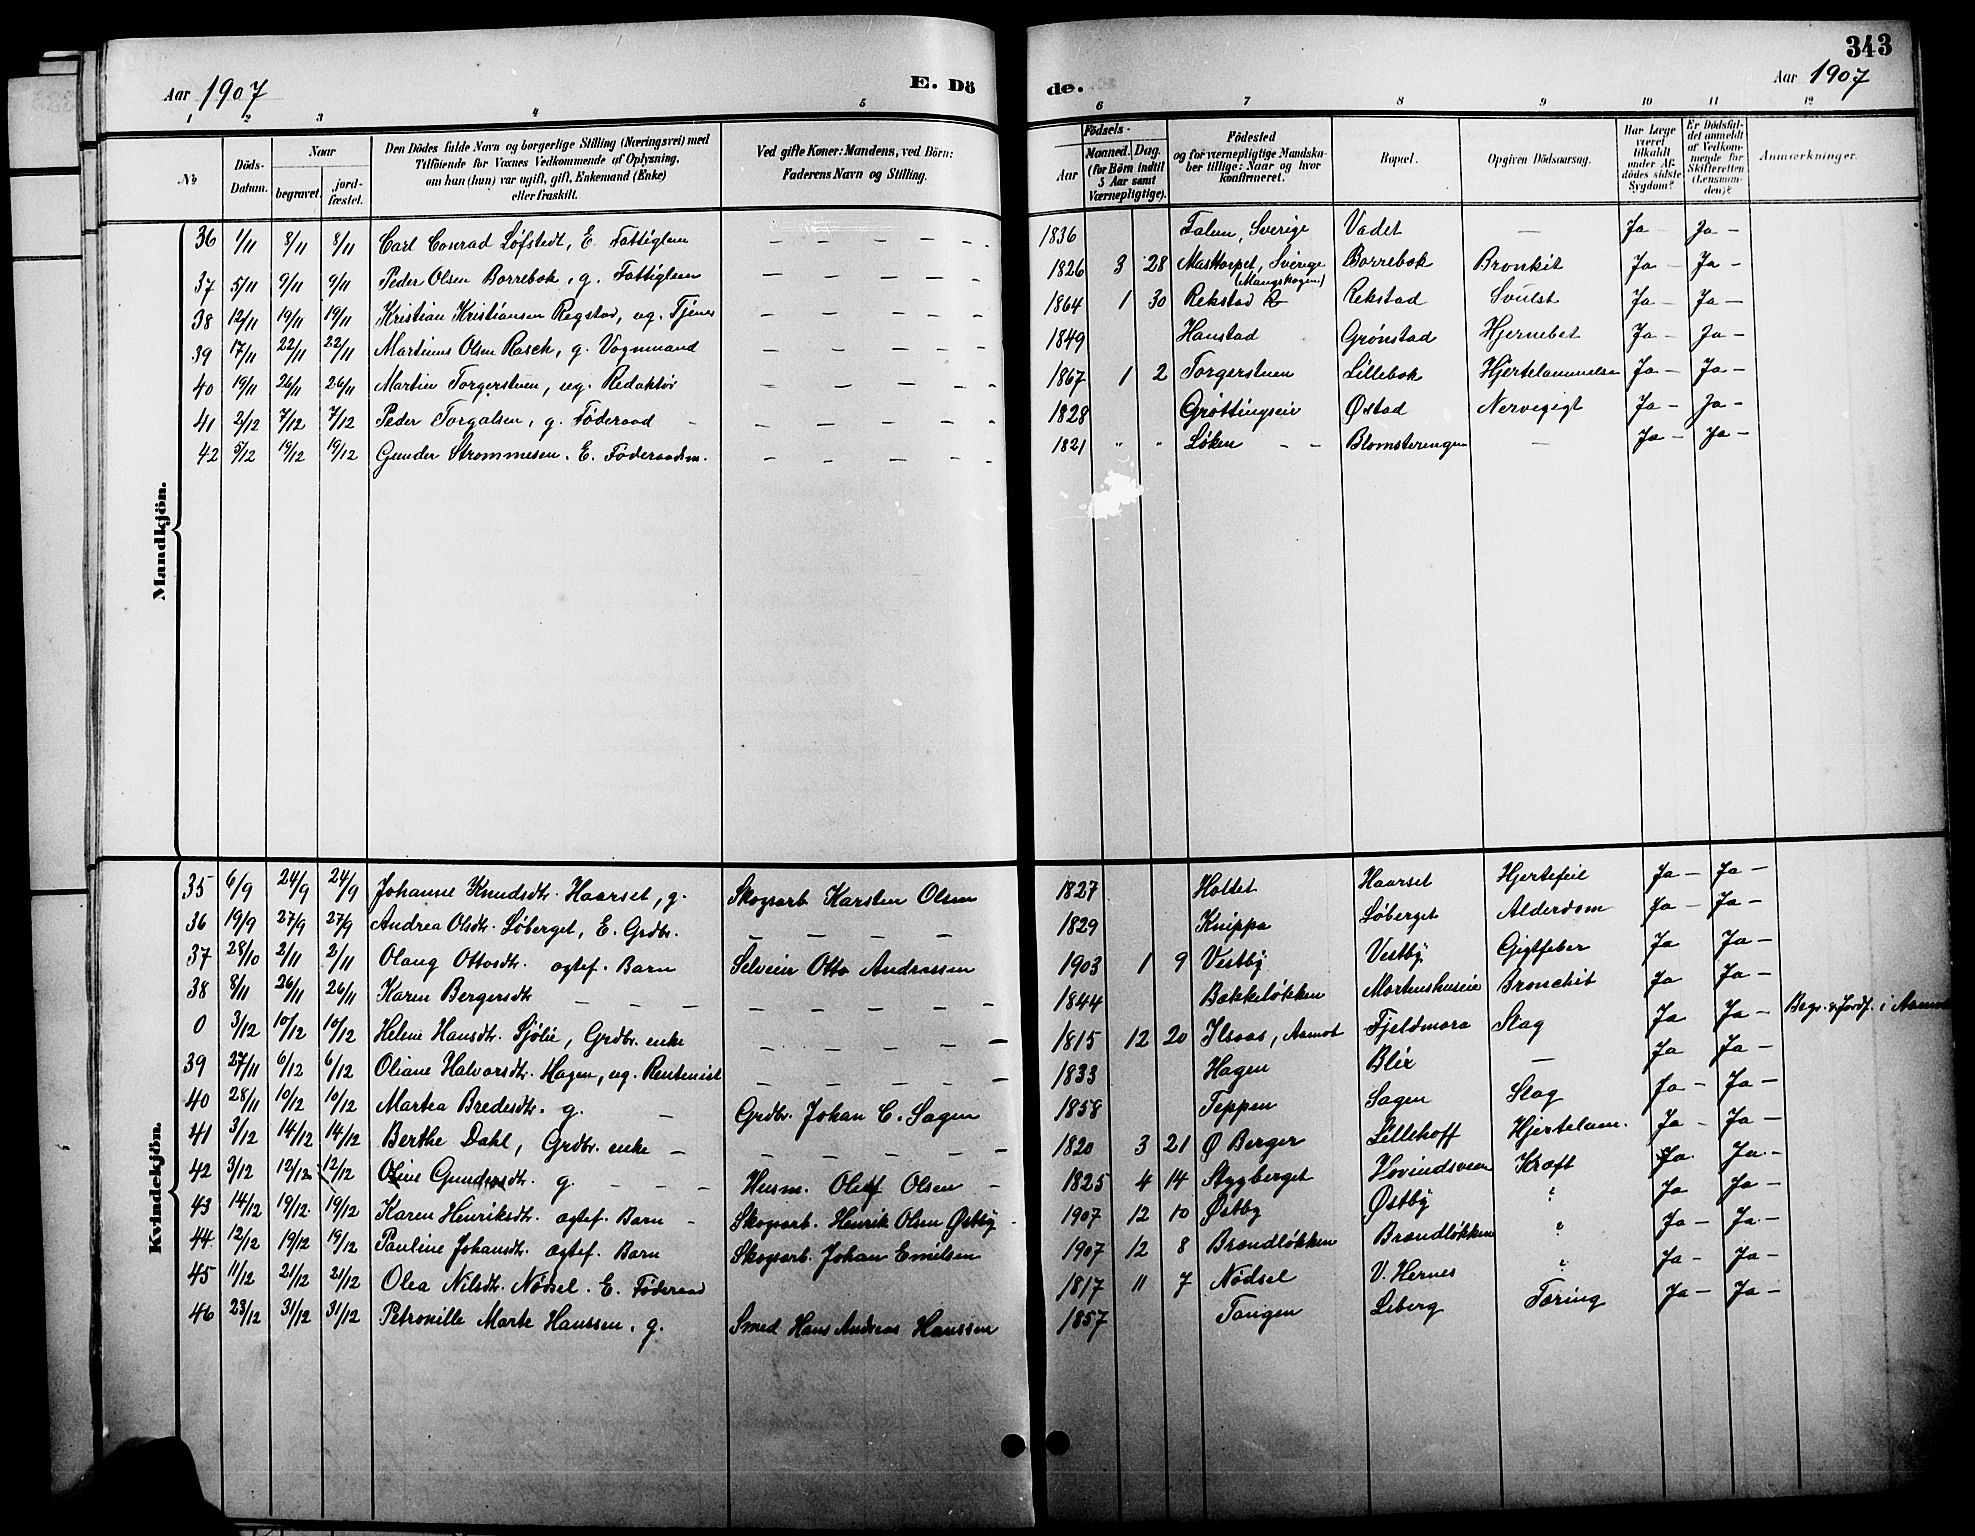 343
Aar 1907 E. Dö de. Aar 1907
1 2 3 4 5 6 7 8 9 10 11 12
№
Döds-Datum.
Naar
begravet.
jord-fæstet.
Den Dödes fulde Navn og borgerlige Stilling (Næringsvei) med
Tilföiende for Voxnes Vedkommende af Oplysning,
om han (hun) var ugift, gift, Enkemand (Enke)
eller fraskilt.
Ved gifte Koner: Mandens, ved Börn:
Faderens Navn og Stilling.
Födsels-
Aar
Maaned. Dag.
(for Börn indtil
5 Aar samt
Værnepligtige).
Födested
og for værnepligtige Mandska-
ber tillige: Naar og hvor
konfirmeret.
Bopæl.
Opgiven Dödsaarsag.
Har Læge
været
tilkaldt
under Af-
dödes sidste
Sygdom?
Er Dödsfal-
det anmeldt
af Vedkom-
mende for
Skifteretten
(Lensman-
den)?
Anmærkninger.
Mandkjön.
36 1/11 8/11 8/11 Carl Conrad Løfstedt, E. Fattiglem — — — — — 1836 Falun, Sverige Vadet — Ja — Ja —
37 5/11 9/11 9/11 Peder Olsen Borrebok, g. Fattiglem — — — — — 1826 3 28 Masttorpet, Sverige (Mangskogen) Borrebok Bronkit Ja — Ja —
38 12/11 19/11 19/11 Kristian Kristiansen Regstad, ug. Tjener — — — — — 1864 1 30 Rekstad Rekstad Svulst Ja — Ja —
39 17/11 22/11 22/11 Martinus Olsen Rasch, g. Vognmand — — — — — 1849 Hanstad Grønstad Hjernebet Ja — Ja —
40 19/11 26/11 26/11 Martin Torgerstuen, ug. Redaktør — — — — — 1867 1 2 Torgerstuen Lillebok Hjertelammelse Ja — Ja —
41 2/12 7/12 7/12 Peder Torgalsen, g. Føderaad — — — — — — 1828 Grøttingseie Østad Nervegigt Ja — Ja —
42 5/12 19/12 19/12 Gunder Strommesen. E. Føderaadsm. — — — — — 1821 " " Løken — — Blomsterengen — Ja — Ja —
Kvindekjön.
35 6/9 24/9 24/9 Johanne Knudsdtr. Haarset, g. Skogsarb Karsten Olsen 1827 Holtet Haarset Hjertefeil Ja — Ja —
36 19/9 27/9 27/9 Andrea Olsdtr. Løberget, E. Grdbr. — — — — 1829 Knippa Løberget Alderdom Ja — Ja —
37 28/10 2/11 2/11 Olaug Ottosdtr. ogtef. Barn Selveier Otto Andreassen 1903 1 9 Vestby Vestby Gigtfeber Ja Ja —
38 8/11 26/11 26/11 Karen Bergersdtr — — — — — — — 1844 Bakkeløkken Mortenshuseie Bronchit Ja Ja —
0 3/12 10/12 10/12 Helene Hansdtr. Sjølie, Grdbr. enke — — — — — 1815 12 20 Ilsaas, Aamot Fjeldmora Slag Ja Ja — Begr. & Jordf. i Aamot
39 27/11 6/12 6/12 Oliane Halvorsdtr. Hagen, ug. Rentenist — — — — — 1833 Hagen Blix — Ja Ja —
40 28/11 10/12 10/12 Martea Bredesdtr. g. — Grdbr. Johan C. Sagen 1858 Teppen Sagen Slag Ja — Ja —
41 3/12 14/12 14/12 Berthe Dahl, Grdbr. enke — — — — — 1820 3 21 Ø Berger Lillehoff Hjertelam. Ja — Ja —
42 3/12 12/12 12/12 Oline Gundersdtr. g. — — — Husm. Oluf Olsen — 1825 4 14 Stygberget Hovindsveen Kræft Ja. Ja. —
43 14/12 19/12. 19/12 Karen Henriksdtr. ogtef. Barn — Skogsarb. Henrik Olsen Østby — 1907 12 10 Østby Østby " Ja Ja —
44. 12/12 19/12 19/12 Pauline Johansdtr. ogtef. Barn Skogsarb. Johan Emilsen 1907 12 8 Brændløkken Brændløkken " Ja — Ja. —
45 11/12 21/12 21/12 Olea Nilsdtr. Nødsel. E. Føderaad 1817 11 7 Nødsel V. Hernes " Ja — Ja —
46 23/12 31/12 31/12 Petronille Marte Hanssen. g. Smed Hans Andreas Hanssen 1857 Tangen Leberg Tæring Ja — Ja —